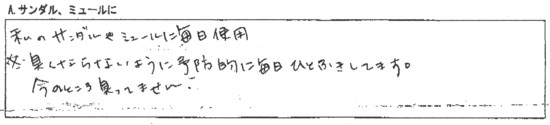 A. サンダル、ミュールに
私のサンダルやミュールに毎日使用
臭くならないように予防的に毎日ひとふきしてます。
今のところ臭ってません。